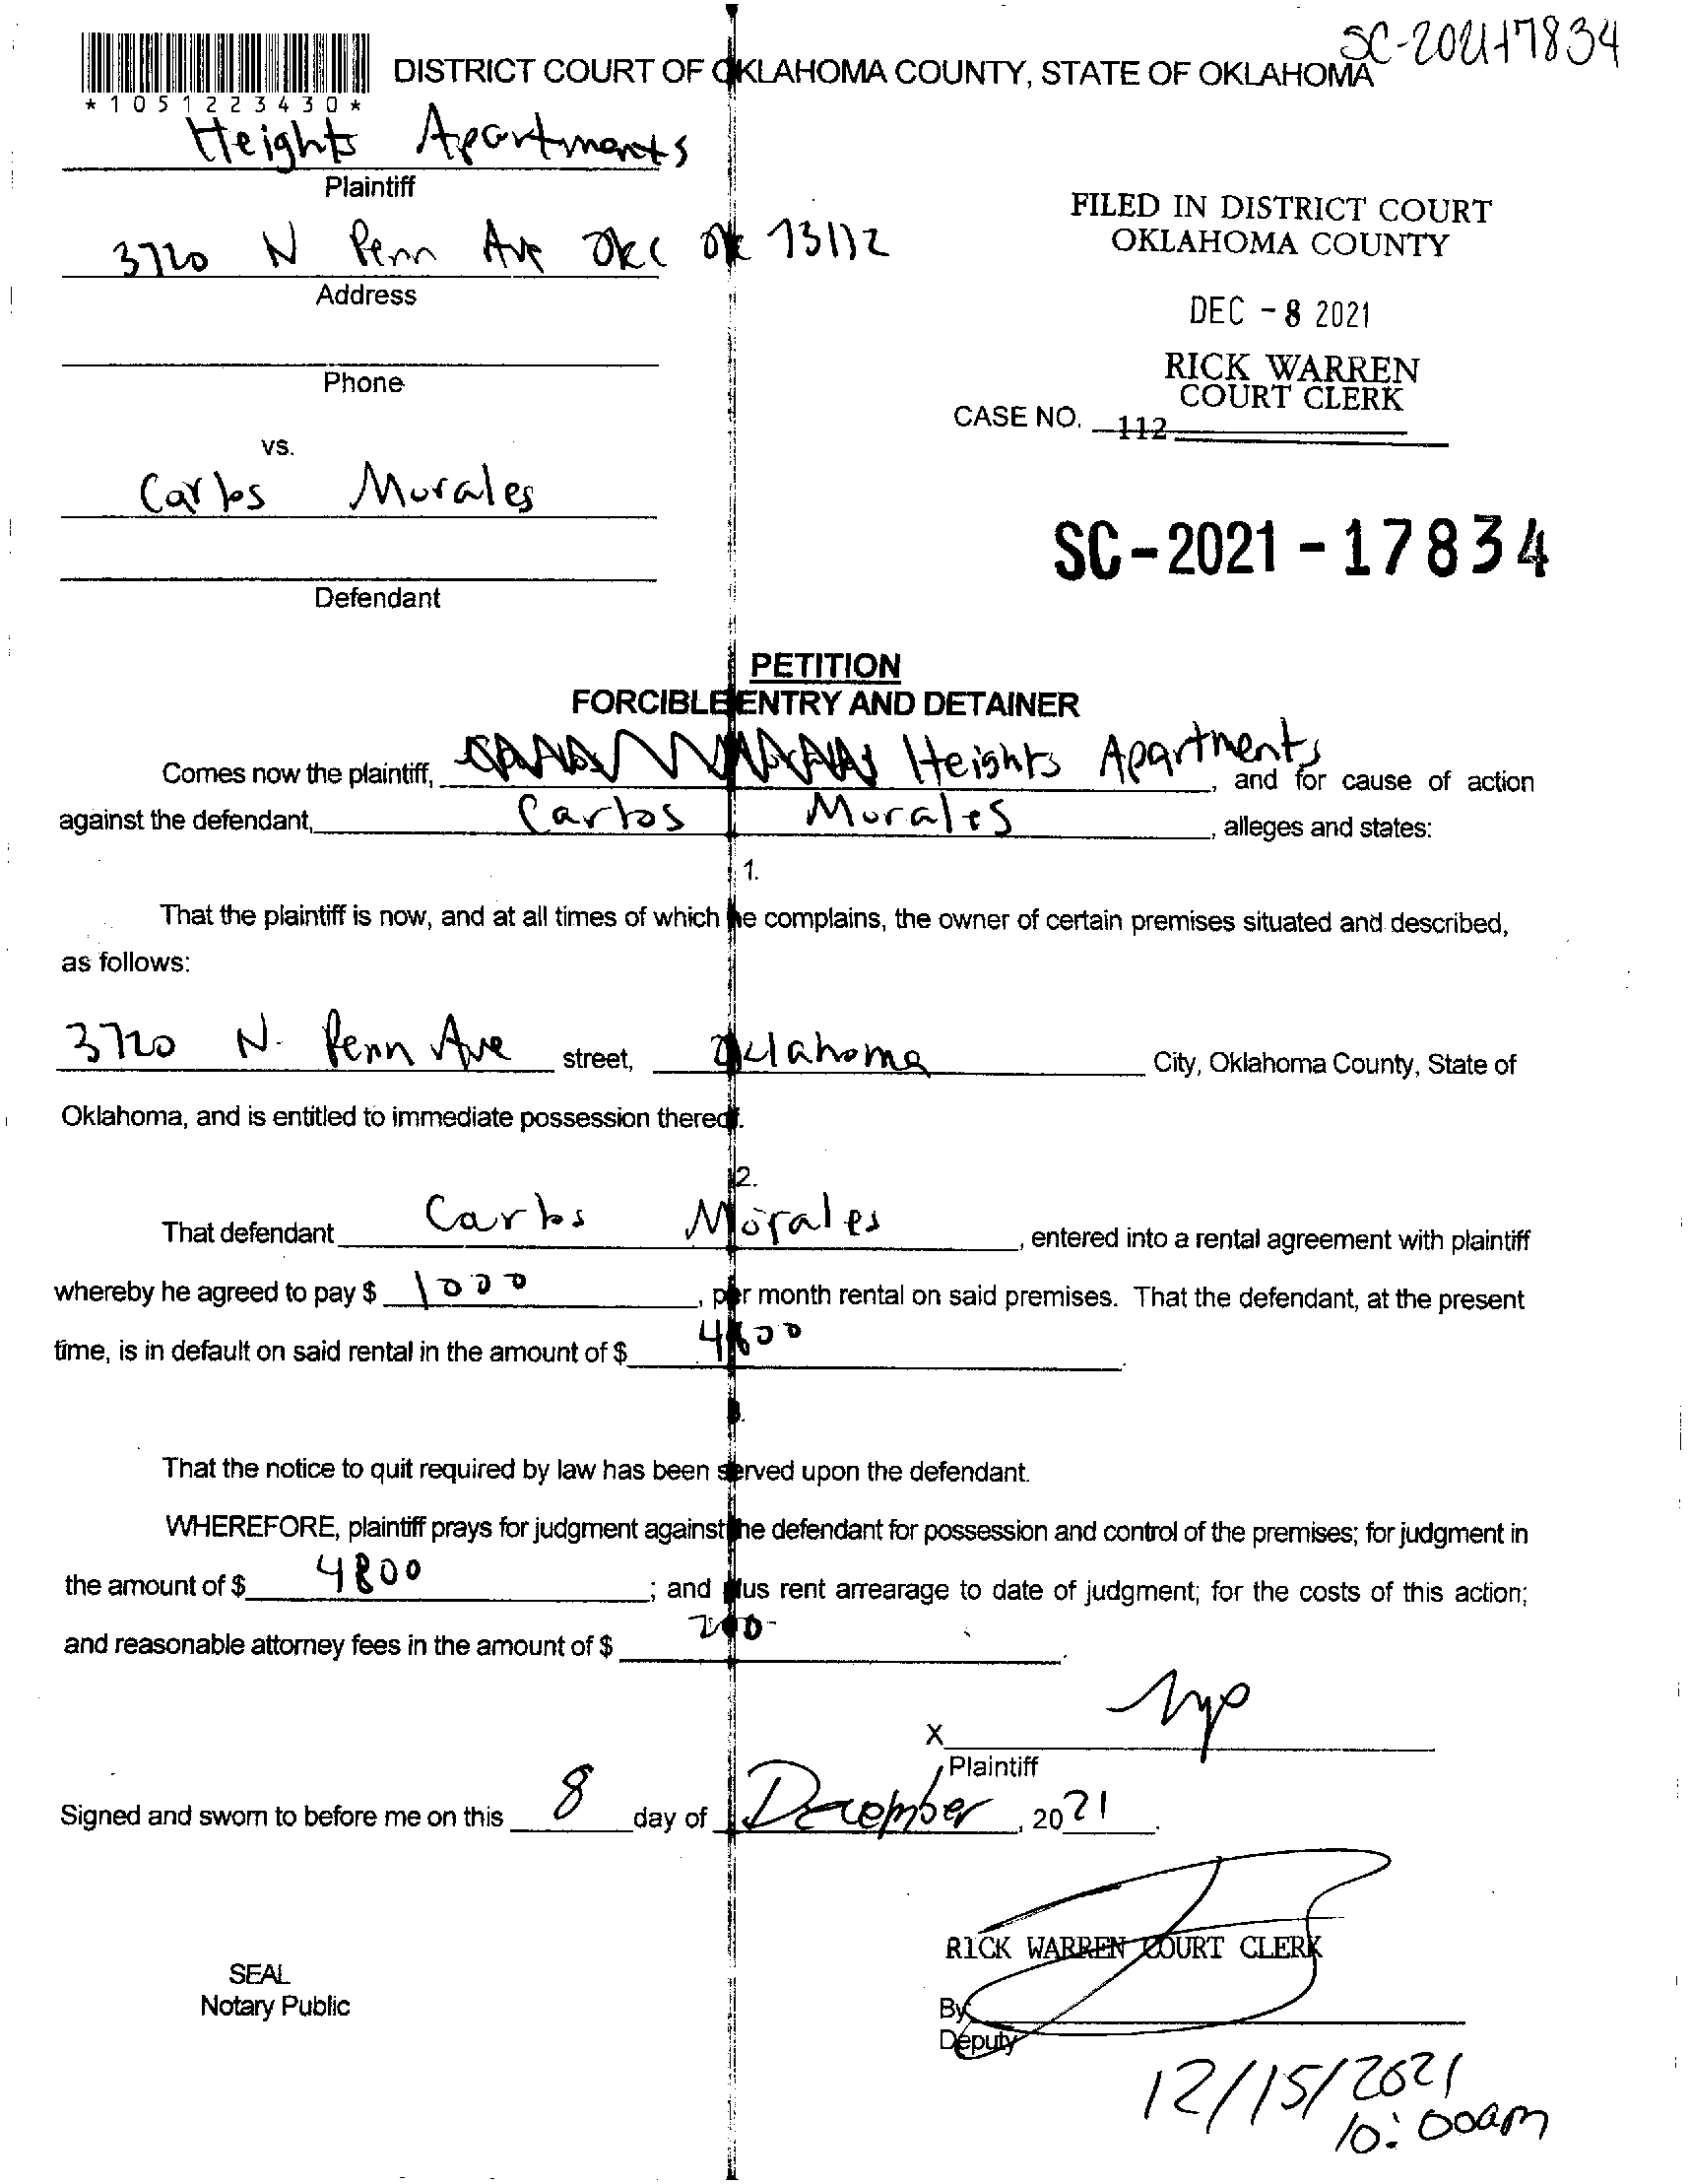 SC-2021-17834
DISTRICT COURT OF OKLAHOMA COUNTY, STATE OF OKLAHOMA
*1051223430*
Heights Apartments
Plaintiff
3720 N Penn Ave OKC OK 73112
Address
Phone
FILED IN DISTRICT COURT
OKLAHOMA COUNTY
DEC - 8 2021
RICK WARREN
COURT CLERK
CASE NO. 112
vs.
Carlos Morales
Defendant
SC-2021-17834
PETITION
FORCIBLE ENTRY AND DETAINER
Comes now the plaintiff, Heights Apartments, and for cause of action
against the defendant, Carlos Morales, alleges and states:
1.
That the plaintiff is now, and at all times of which he complains, the owner of certain premises situated and described,
as follows:
3720 N. Penn Ave street, Oklahoma City, Oklahoma County, State of
Oklahoma, and is entitled to immediate possession thereof.
2.
That defendant Carlos Morales, entered into a rental agreement with plaintiff
whereby he agreed to pay $ 1000, per month rental on said premises. That the defendant, at the present
time, is in default on said rental in the amount of $ 4800.
3.
That the notice to quit required by law has been served upon the defendant.
WHEREFORE, plaintiff prays for judgment against the defendant for possession and control of the premises; for judgment in
the amount of $ 4800; and plus rent arrearage to date of judgment; for the costs of this action;
and reasonable attorney fees in the amount of $ 200.
X
Plaintiff
Signed and sworn to before me on this 8 day of December, 2021.
RICK WARREN COURT CLERK
SEAL
Notary Public
By
Deputy
12/15/2021
10:00am